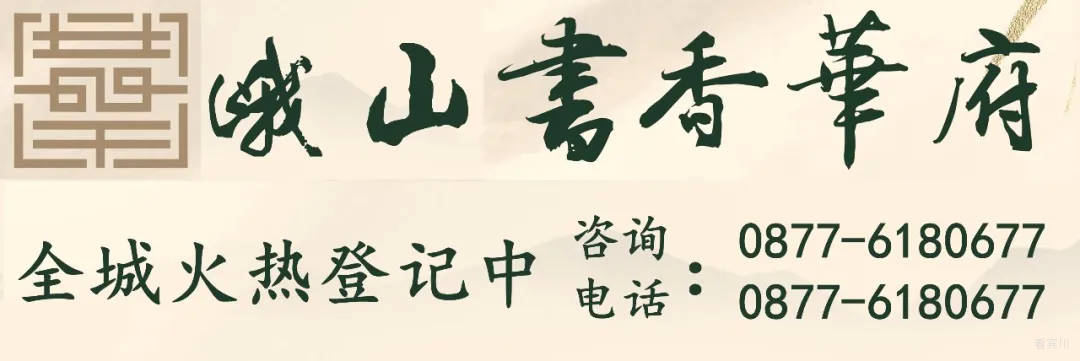 峨山書香華府
全城火热登记中
咨询电话：
0877-6180677
0877-6180677
看宾川